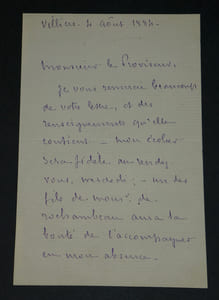 Villiers. 4 août 1884.
Monsieur le Proviseur,
Je vous remercie beaucoup
de votre lettre, et des
renseignements qu'elle
contient — mon écolier
sera fidèle au rendez
vous, mercredi ; — un des
fils de mons^r. de
rochambeau aura la
bonté de l'accompagner
en mon absence.